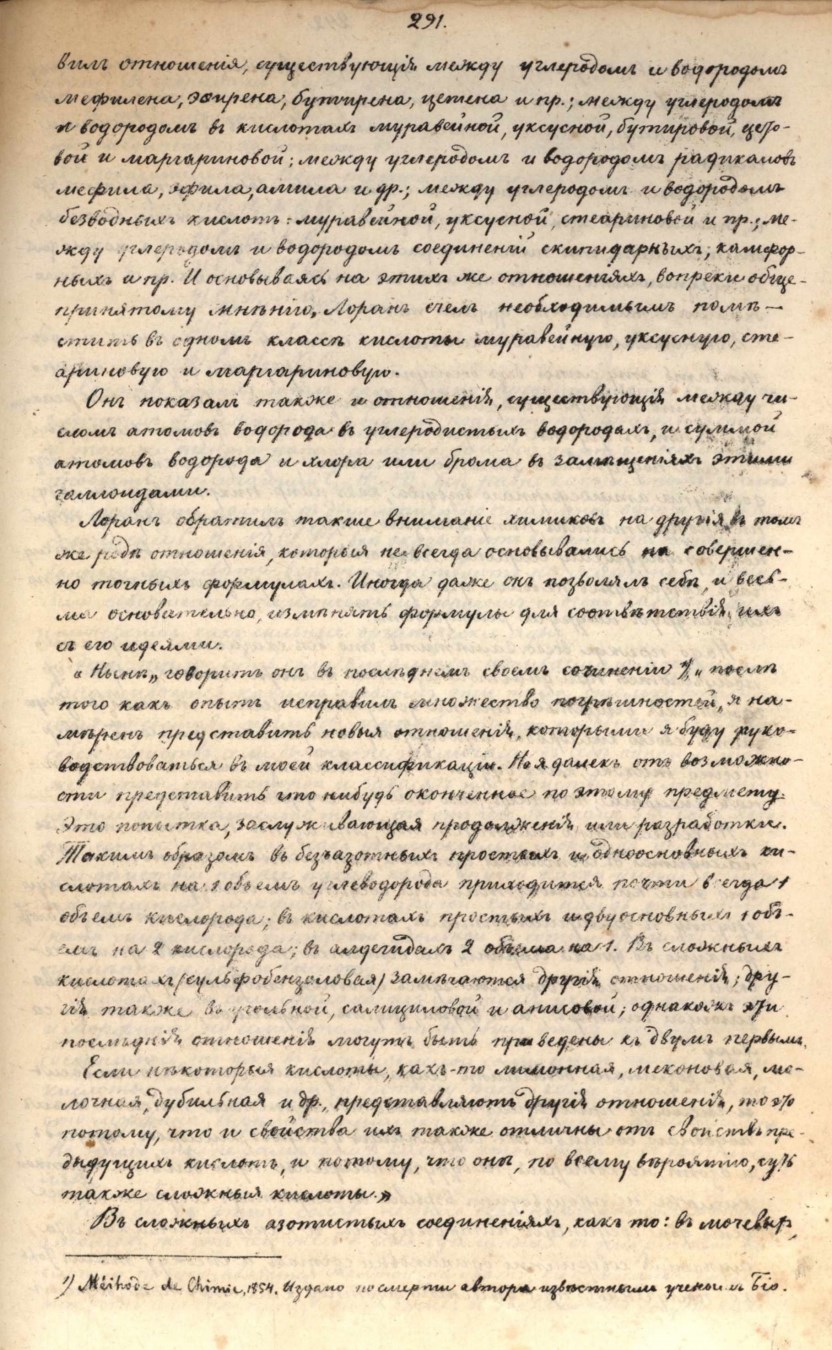 291.
вилъ отношенія, существующія между углеродомъ и водородомъ
мефилена, эѳирена, бутирена, цетена и пр.; между углеродомъ
и водородомъ въ кислотахъ муравейной, уксусной, бутировой, цето-
вой и маргариновой; между углеродомъ и водородомъ радикаловъ
мефила, эфила, амила и др.; между углеродомъ и водородомъ
безводныхъ кислотъ: муравейной, уксусной, стеариновой и пр.; ме-
жду углеродомъ и водородомъ соединеній скипидарныхъ, камфор-
ныхъ и пр. И основываясь на этихъ же отношеніяхъ, вопреки обще-
принятому мнѣнію, Лоранъ счелъ необходимымъ помѣ-
стить въ одномъ классѣ кислоты муравейную, уксусную, сте-
ариновую и маргариновую.
Онъ показалъ также и отношенія, существующія между чи-
сломъ атомовъ водорода въ углеродистыхъ водородахъ, и суммой
атомовъ водорода и хлора или брома въ замѣщеніяхъ этими
галлоидами.
Лоранъ обратилъ также вниманіе химиковъ на другія въ томъ
же родѣ отношенія, которыя не всегда основывались на совершен-
но точныхъ формулахъ. Иногда даже онъ позволялъ себѣ, и весь-
ма основательно, измѣнять формулы для соотвѣтствія ихъ
съ его идеями.
„Нынѣ„ говоритъ онъ въ послѣднемъ своемъ сочиненіи ¹), „послѣ
того какъ опытъ исправилъ множество погрѣшностей, я на-
мѣренъ представить новыя отношенія, которыми я буду руко-
водствоваться въ моей классификаціи. Но я далекъ отъ возможно-
сти представить что нибудь оконченное по этому предмету.
Это попытка, заслуживающая продолженія или разработки.
Такимъ образомъ въ безъазотныхъ простыхъ и одноосновныхъ ки-
слотахъ на 1 объемъ углеводорода приходится почти всегда 1
объемъ кислорода; въ кислотахъ простыхъ и двуосновныхъ 1 объ-
емъ на 2 кислорода; въ алдегидахъ 2 объема на 1. Въ сложныхъ
кислотахъ (сульфобензоловая) замѣчаются другія отношенія; дру-
гія также въ угольной, салициловой и анисовой; однакожъ эти
послѣднія отношенія могутъ быть приведены къ двумъ первымъ.
Если нѣкоторыя кислоты, какъ-то лимонная, меконовая, мо-
лочная, дубильная и др., представляютъ другія отношенія, то это
потому, что и свойства ихъ также отличны отъ свойствъ пре-
дыдущихъ кислотъ, и потому, что онѣ, по всему вѣроятію, суть
также сложныя кислоты.„
Въ сложныхъ азотистыхъ соединеніяхъ, какъ то: въ мочевыр,
¹) Méthode de Chimie, 1854. Издано по смерти автора извѣстнымъ ученымъ Біо.